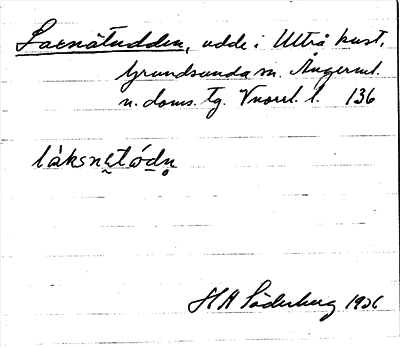 Laxnätudden, udde i Ultrå kust,
Grundsunda sn. Ångerml.
n. doms. tg. Vnorrl. l. 136
làksnętód̲n̥
H A Söderberg 1926